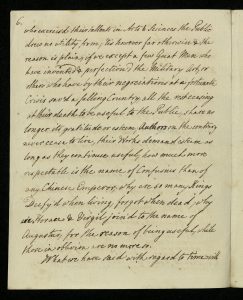 6.
who exercised their talents in Arts & Sciences the Public
drew no utility from, this however far otherwise & the
reason is plain; if we except a few Great Men who
have invented & perfection'd the Military Art, or
others who have by their negociations at a
Crisis saved a falling Country, all the rest ceasing
at their death to be useful to the Public, share no
longer its gratitude or esteem, Authors on the contrary
never cease to live, their Works demand esteem as
long as they continue useful, how much more
respectable is the name of Confusius than of
any Chinese Emperor, why are so many Kings
Deify'd when living, forgot when dead, why
Horace & Virgil join'd to the name of
Augustus, for the reason of being useful, while
those in oblivion are no more so.
What we have said with regard to time will